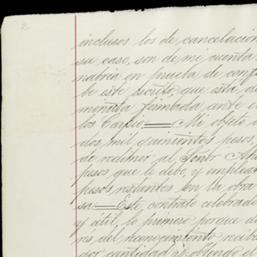 inclusos los de cancelación
su caso, son de mi cuenta
natria en prueba de conf
be este escrito, que sita de
menata firmada ante e
los Carpio.= Mi objeto
dos mil quinientos pesos,
de recibir al Señor Ap
pesos que le debe, y
pesos restantes en la obra
sa= Este contrato celebrado
y útil, lo primero porque de
ris del reconocimiento recibe
por cantidad